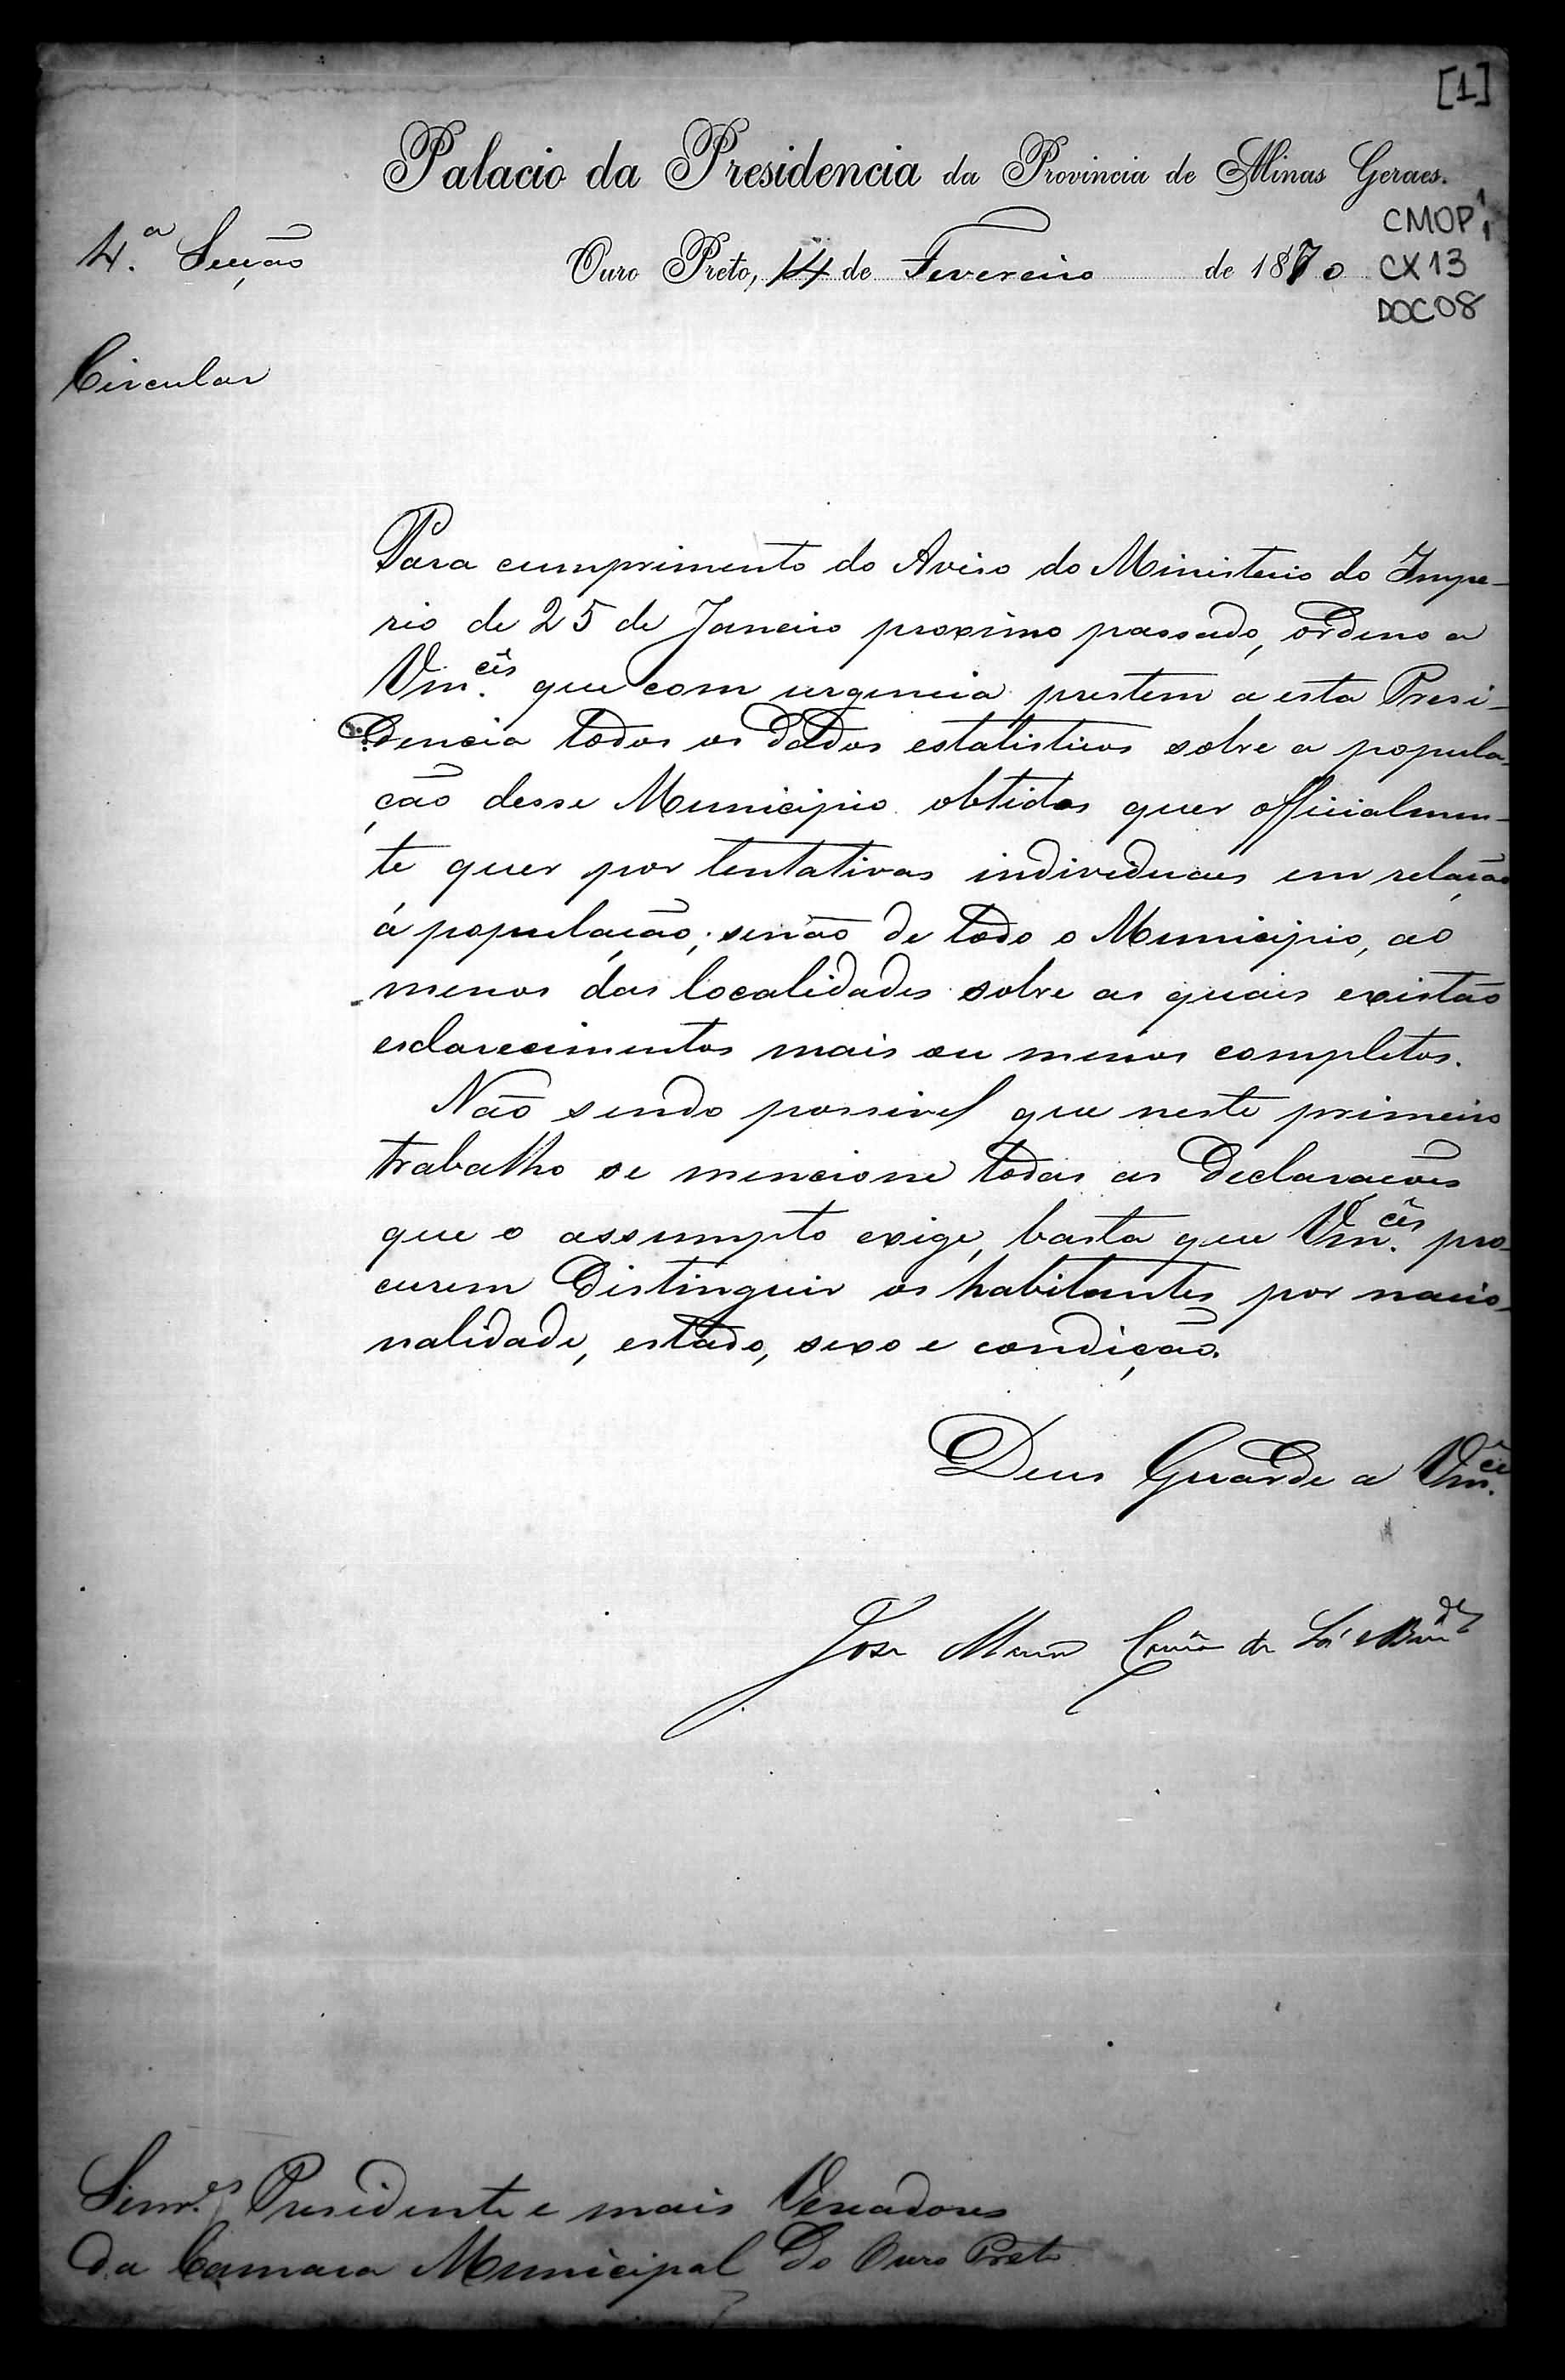 [1]
Palacio da Presidencia da Provincia de Minas Geraes.
CMOP
4.ª Secção
Ouro Preto, 14 de Fevereiro de 1870
CX 13
DOC 08
Circular
Para cumprimento do Aviso do Ministerio do Impe-
rio de 25 de Janeiro proximo passado, ordeno a
Vm.cês que com urgencia prestem a esta Presi-
dencia todos os dados estatisticos sobre a popula-
ção desse Municipio obtidos quer officialmen-
te quer por tentativas individuaes em relação
á população, senão de todo o Municipio, ao
menos das localidades sobre as quais existão
esclarecimentos mais ou menos completos.
Não sendo possivel que neste primeiro
trabalho se mencione todas as declarações
que o assumpto exige, basta que Vm.cês pro-
curem distinguir os habitantes por nacio-
nalidade, estado, sexo e condição.
Deus Guarde a Vm.cês
José Maria Corrêa de Sá e Bên.des
Senr.es Presidente e mais Vereadores
da Camara Municipal do Ouro Preto